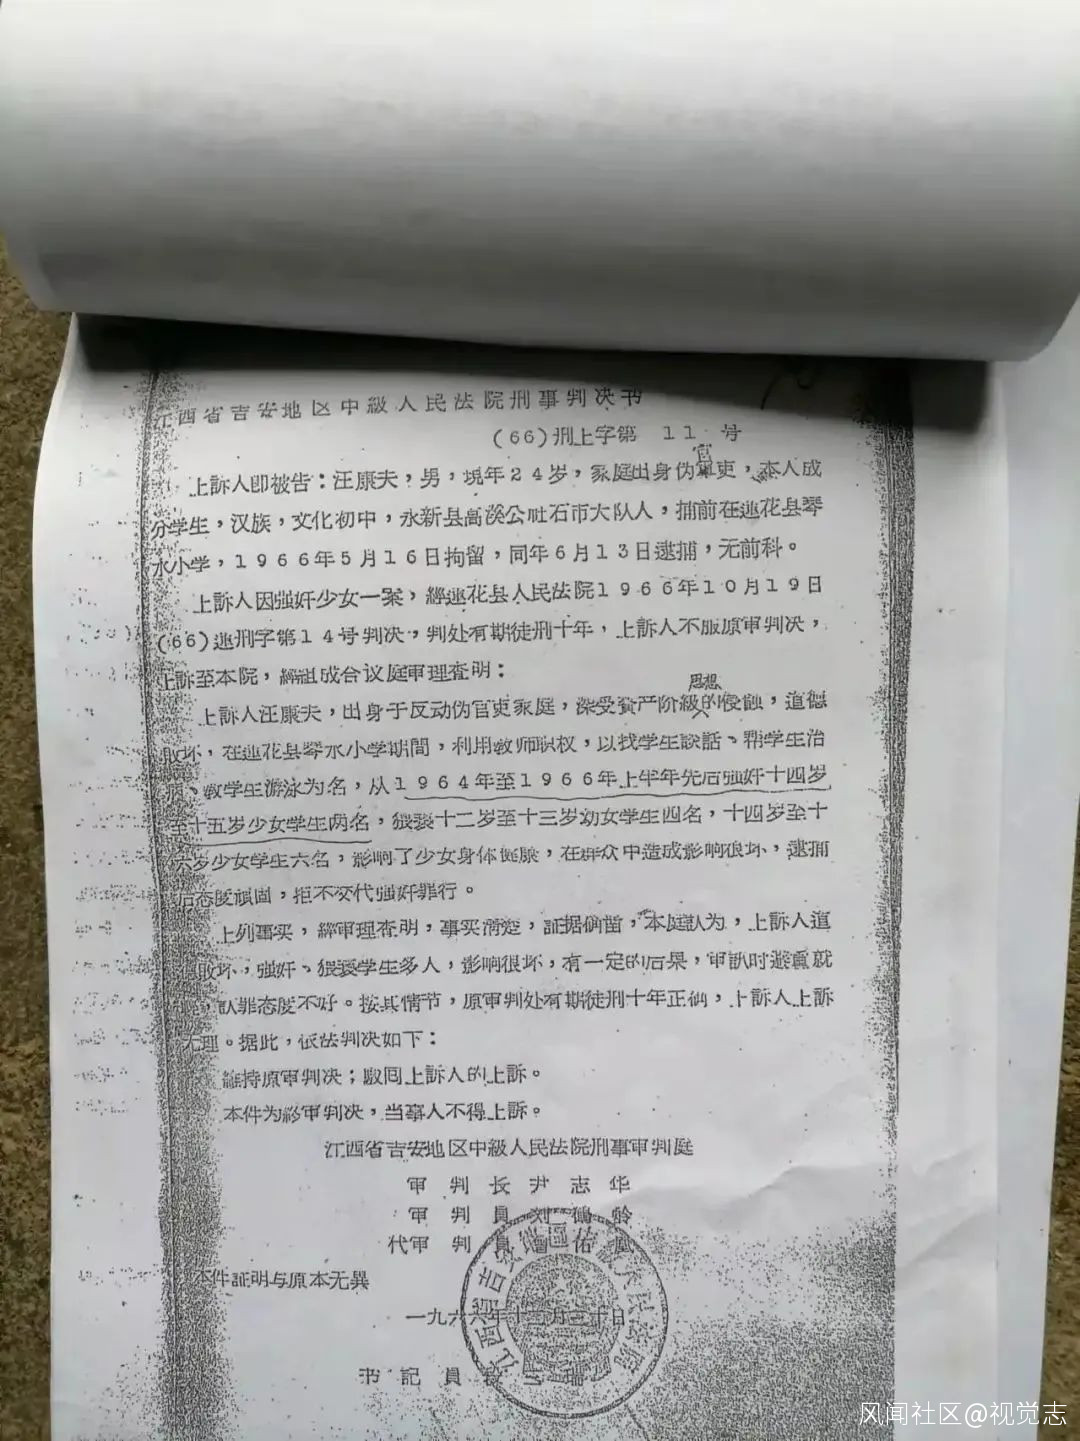 江西省吉安地区中級人民法院刑事判决书
(66)刑上字第 11 号
上訴人即被告：汪康夫，男，現年24岁，家庭出身伪官吏，本人成
分学生，汉族，文化初中，永新县高溪公社石市大队人，捕前在莲花县琴
水小学，1966年5月16日拘留，同年6月13日逮捕，无前科。
上訴人因强奸少女一案，經莲花县人民法院1966年10月19日
(66)莲刑字第14号判决，判处有期徒刑十年，上訴人不服原审判决，
上訴至本院，經組成合议庭审理查明：
上訴人汪康夫，出身于反动伪官吏家庭，深受資产阶級思想的侵蝕，道德
敗坏，在莲花县琴水小学期間，利用教师职权，以找学生談話、帮学生治
病、教学生游泳为名，从1964年至1966年上半年先后强奸十四岁
至十五岁少女学生两名，猥褻十二岁至十三岁幼女学生四名，十四岁至十
六岁少女学生六名，影响了少女身体健康，在群众中造成影响很坏，逮捕
后态度頑固，拒不交代强奸罪行。
上列事实，經审理查明，事实清楚，証据确凿，本庭认为，上訴人道
德敗坏，强奸、猥褻学生多人，影响很坏，有一定的后果，审訊时避重就
认罪态度不好。按其情节，原审判处有期徒刑十年正确，上訴人上訴
无理。据此，依法判决如下：
維持原审判决；駁回上訴人的上訴。
本件为終审判决，当事人不得上訴。
江西省吉安地区中級人民法院刑事审判庭
审 判 长 尹 志 华
审 判 員 刘 鶴 龄
代审 判 員 佑
本件証明与原本无異
一九六六年十二月二十日
书 記 員
江西省吉安地区中級人民法院
风闻社区@视觉志